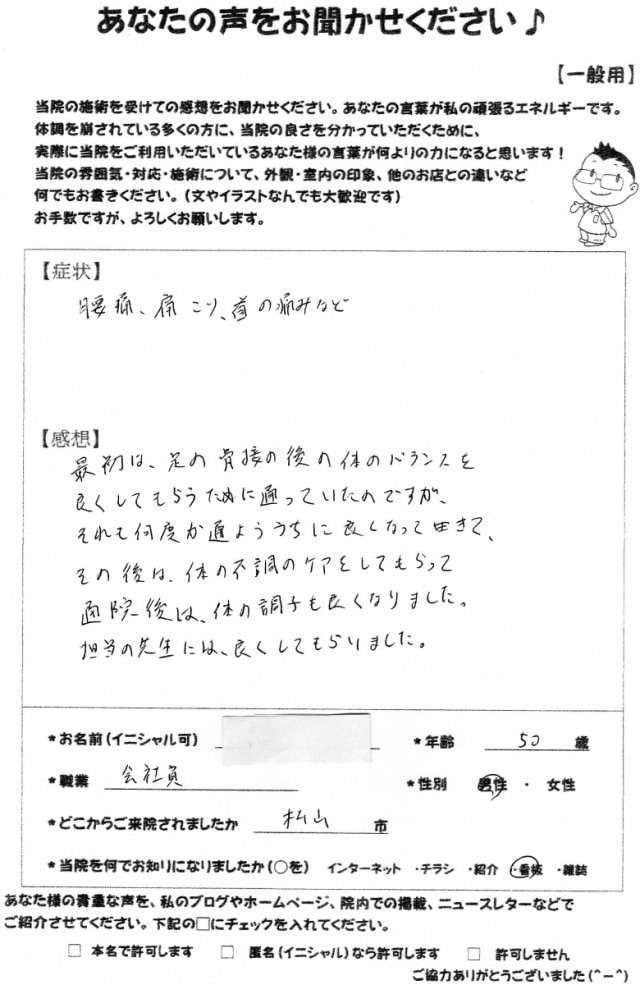 あなたの声をお聞かせください♪
【一般用】
当院の施術を受けての感想をお聞かせください。あなたの言葉が私の頑張るエネルギーです。
体調を崩されている多くの方に、当院の良さを分かっていただくために、
実際に当院をご利用いただいているあなた様の言葉が何よりの力になると思います！
当院の雰囲気・対応・施術について、外観・室内の印象、他のお店との違いなど
何でもお書きください。（文やイラストなんでも大歓迎です）
お手数ですが、よろしくお願いします。
【症状】
腰痛、肩こり、首の痛みなど
【感想】
最初は、足の骨接の後の体のバランスを
良くしてもらうために通っていたのですが、
それも何度か通よううちに良くなって出きて、
その後は、体の不調のケアをしてもらって
通院後は、体の調子も良くなりました。
担当の先生には、良くしてもらいました。
*お名前（イニシャル可）
*年齢 50 歳
*職業 会社員
*性別 男性 ・ 女性
*どこからご来院されましたか 松山 市
*当院を何でお知りになりましたか（○を） インターネット ・チラシ ・紹介 ・看板 ・雑誌
あなた様の貴重な声を、私のブログやホームページ、院内での掲載、ニュースレターなどで
ご紹介させてください。下記の□にチェックを入れてください。
□ 本名で許可します □ 匿名（イニシャル）なら許可します □ 許可しません
ご協力ありがとうございました（^－^）